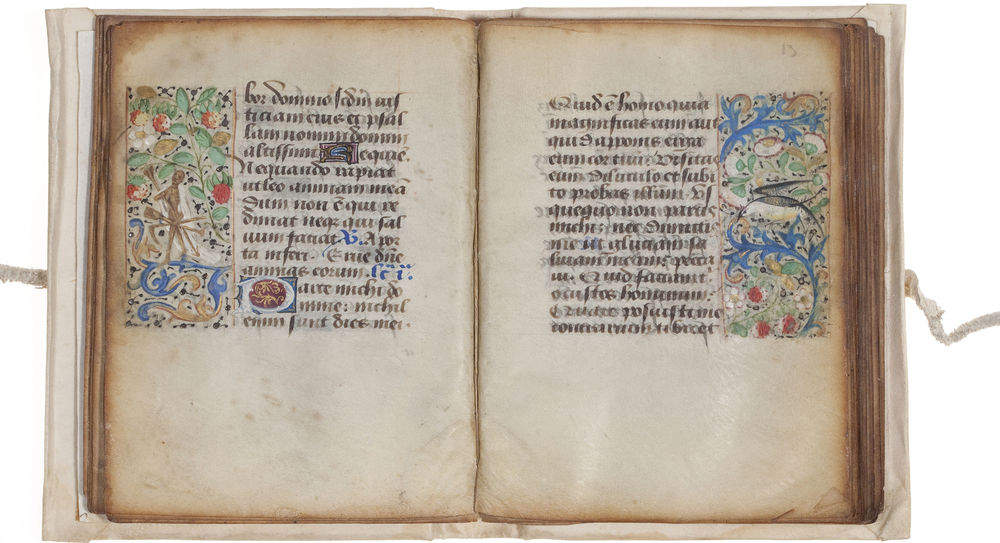 bor domino scdm ius
ticiam eius et psal
lam nomini domini
altissimi Requie.
Nequando rapiat
ut leo animam meā
Dum non ē qui re
dimat neqz qui sal
uum faciat V. A por
ta inferi. Erue dñe
animas eorum.
Parce michi do
mine: nichil
enim sunt dies mei.
13
Quid ē homo quia
magnificas eum aut
quid apponis erga
eum cor tuum Visitas
eum diluculo et subi
to probas illum. Us
quequo non parcis
michi nec dimittis
me ut glutiam sa
liuam meam: pecca
ui. Quid faciam
o custos hominum.
Quare posuisti me
contrarium tibi et